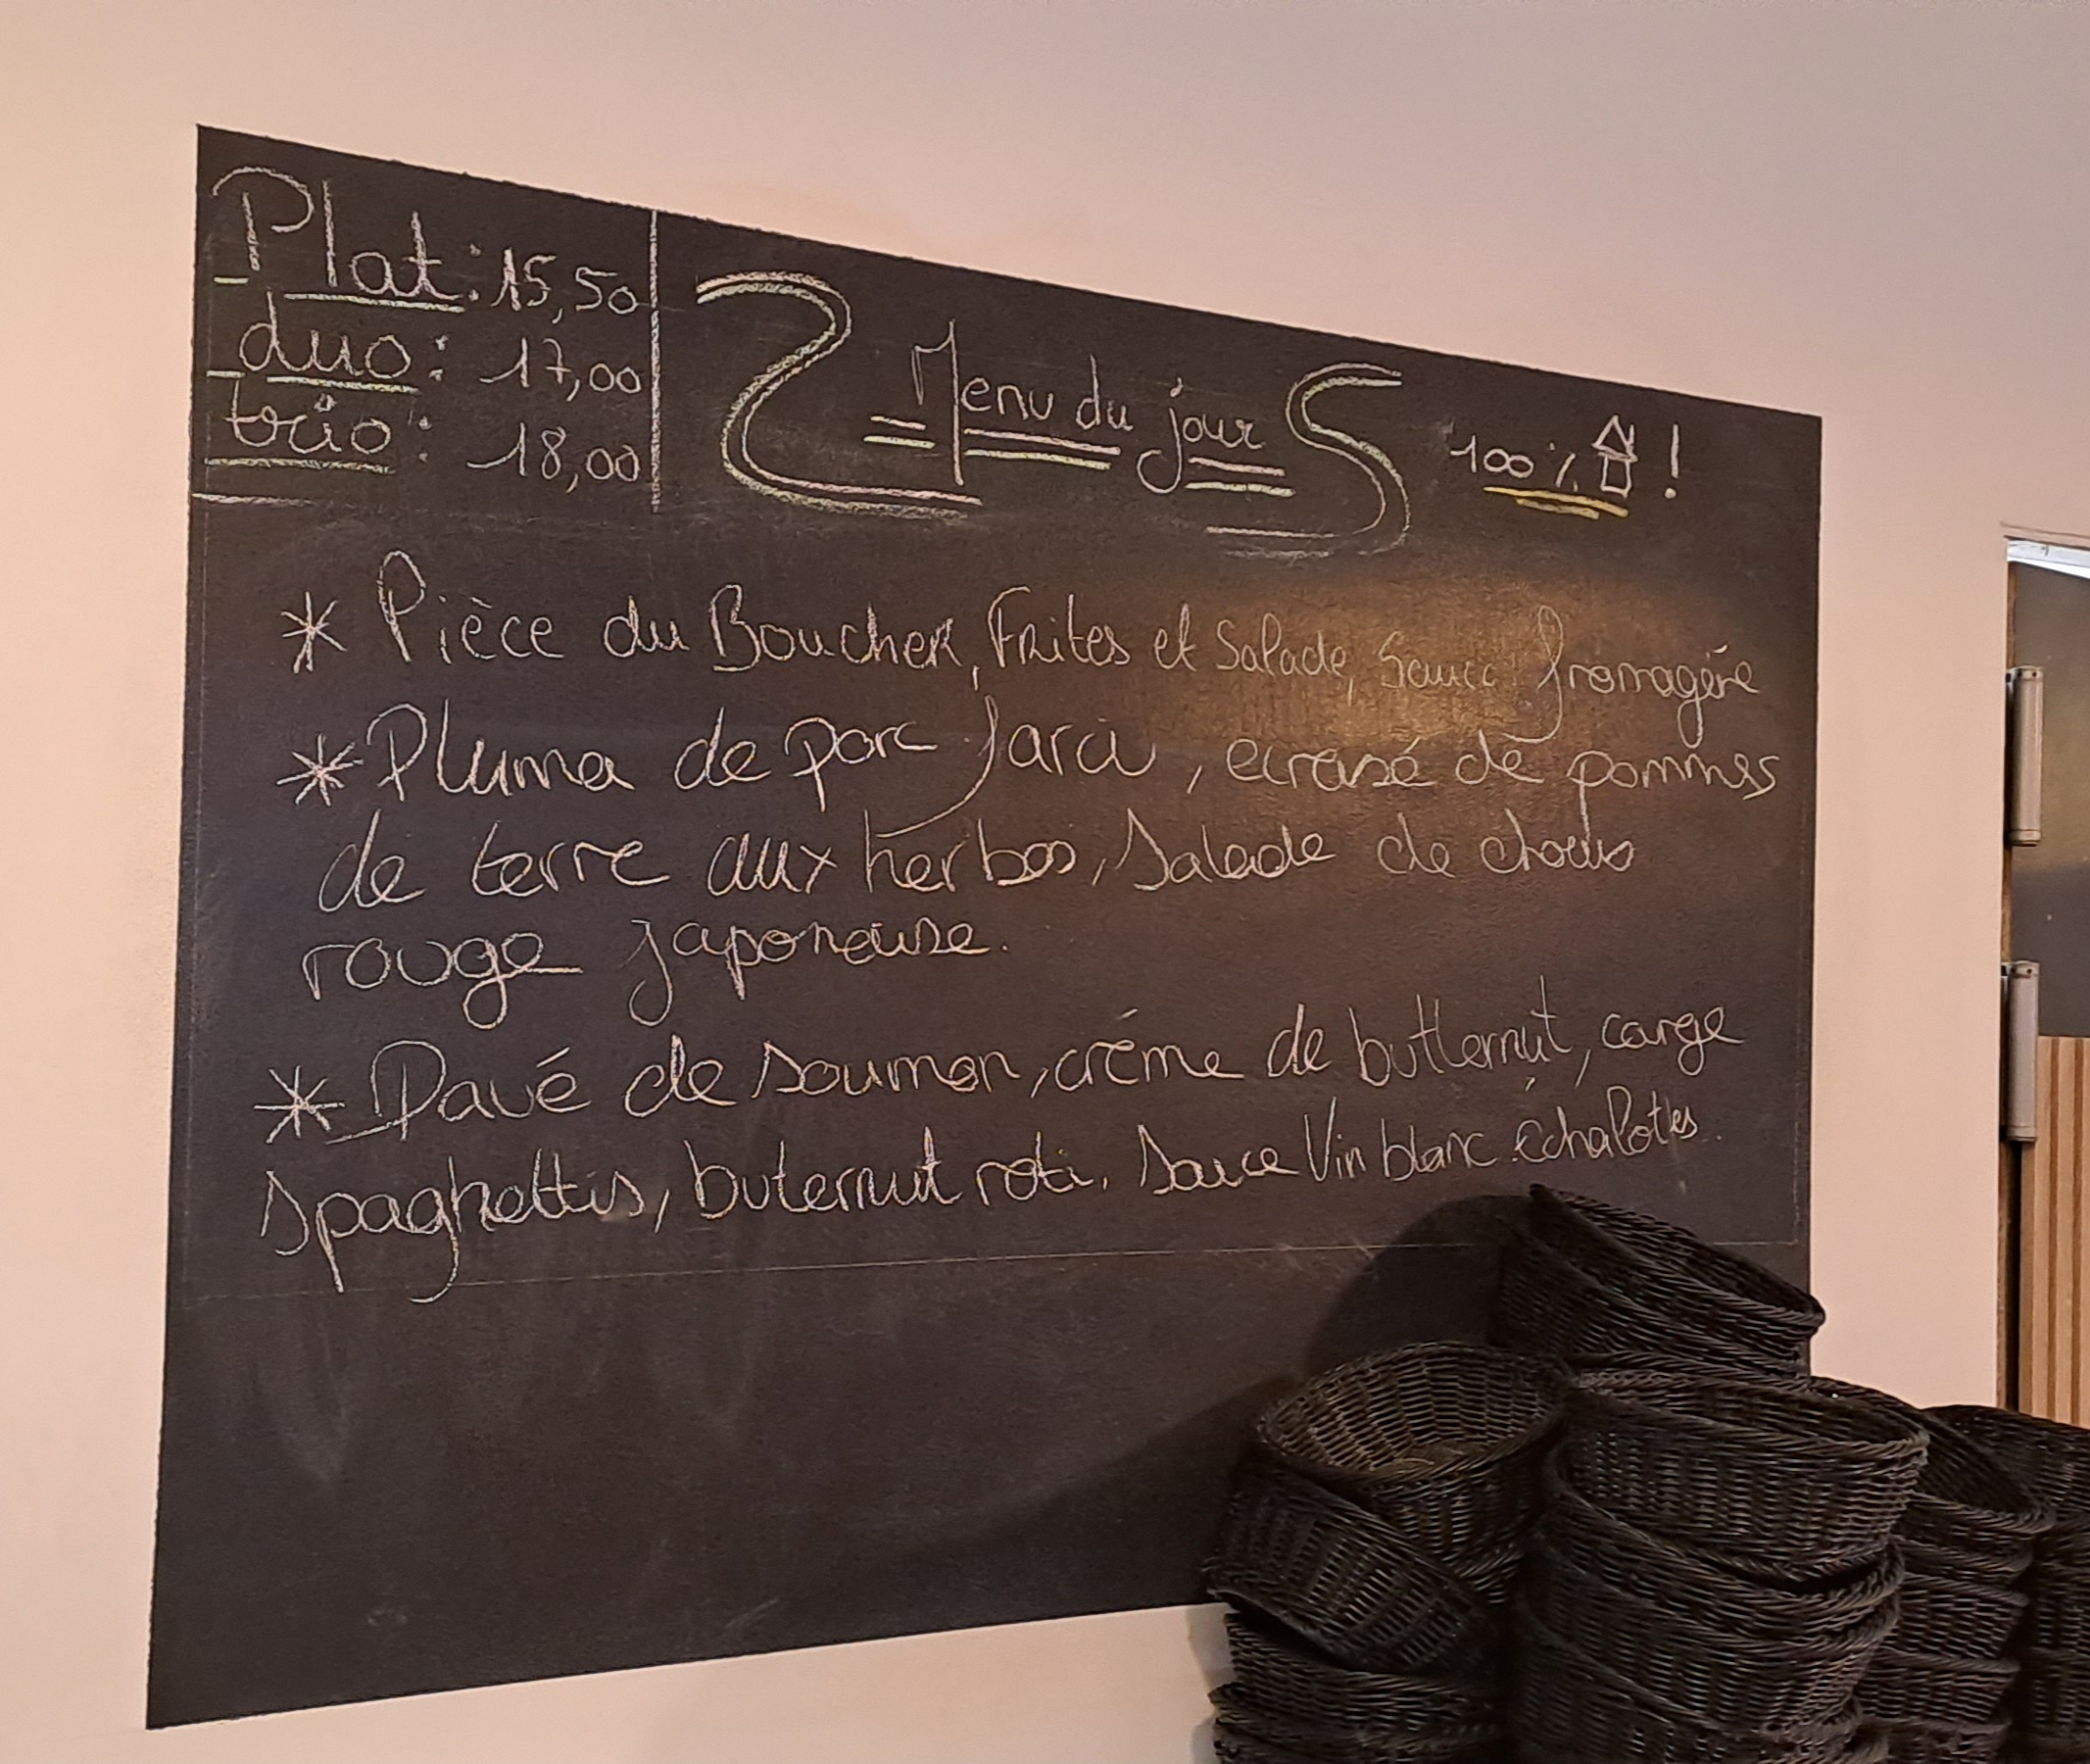 Plat: 15,50
duo: 17,00
trio: 18,00
Menu du jour
100% !
* Pièce du Boucher, Frites et Salade, Sauce fromagère
* Pluma de porc farci, ecrasé de pommes
de terre aux herbes, salade de choux
rouge japonaise.
* Pavé de saumon, crème de butternut, courge
spaghettis, buternut roti, sauce Vin blanc échalottes.